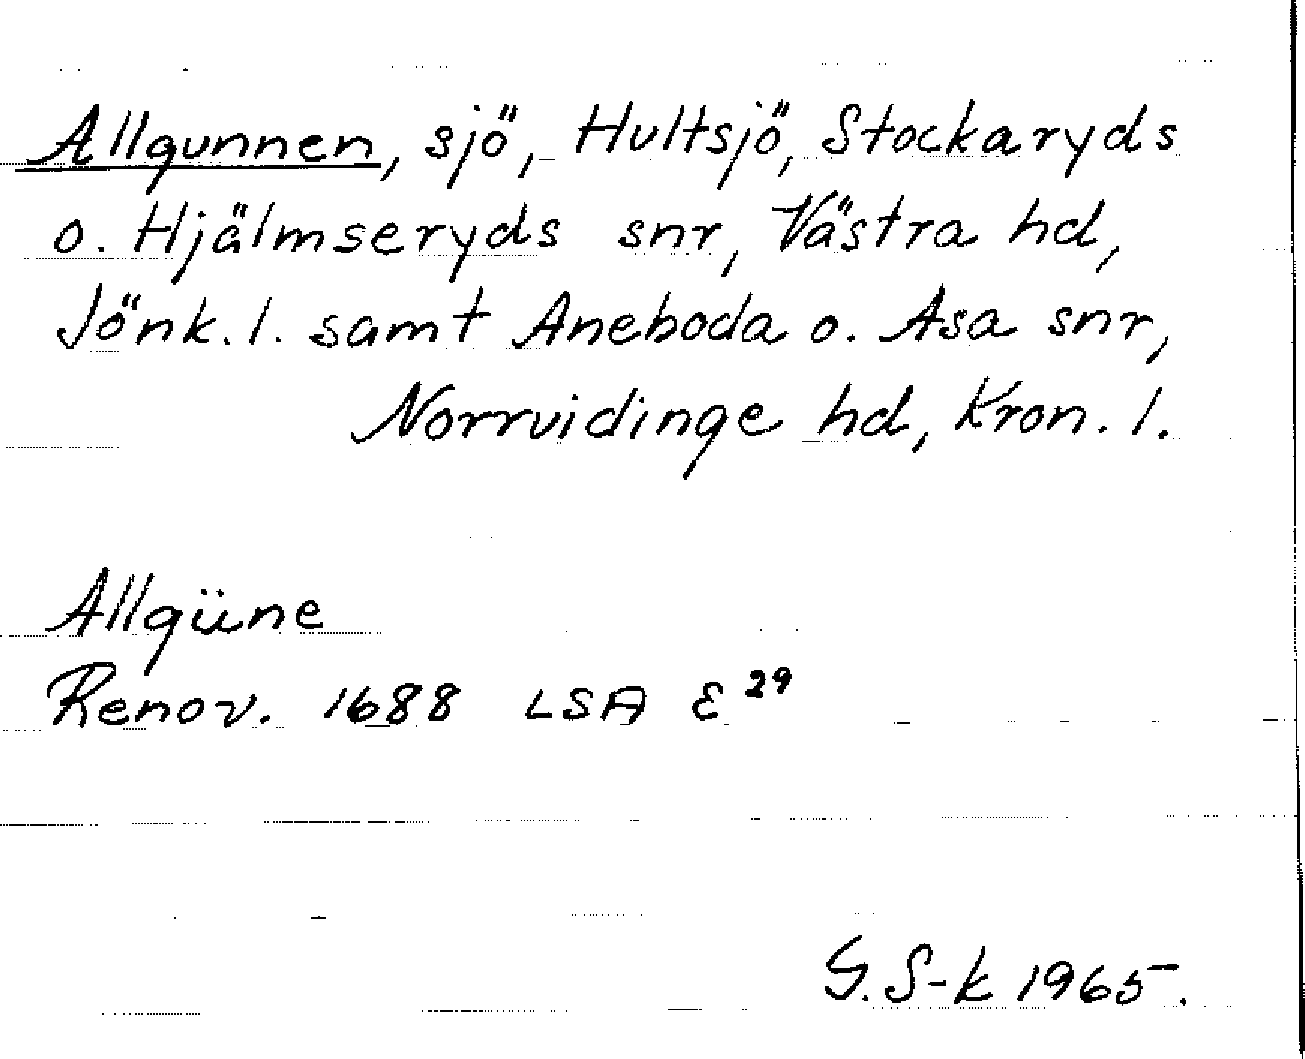 Allgunnen, sjö, Hultsjö, Stockaryds
o. Hjälmseryds snr, Västra hd,
Jönk. l. samt Aneboda o. Asa snr,
Norrvidinge hd, Kron. l.
Allgüne
Renov. 1688 LSA E 29
G. S-k 1965.